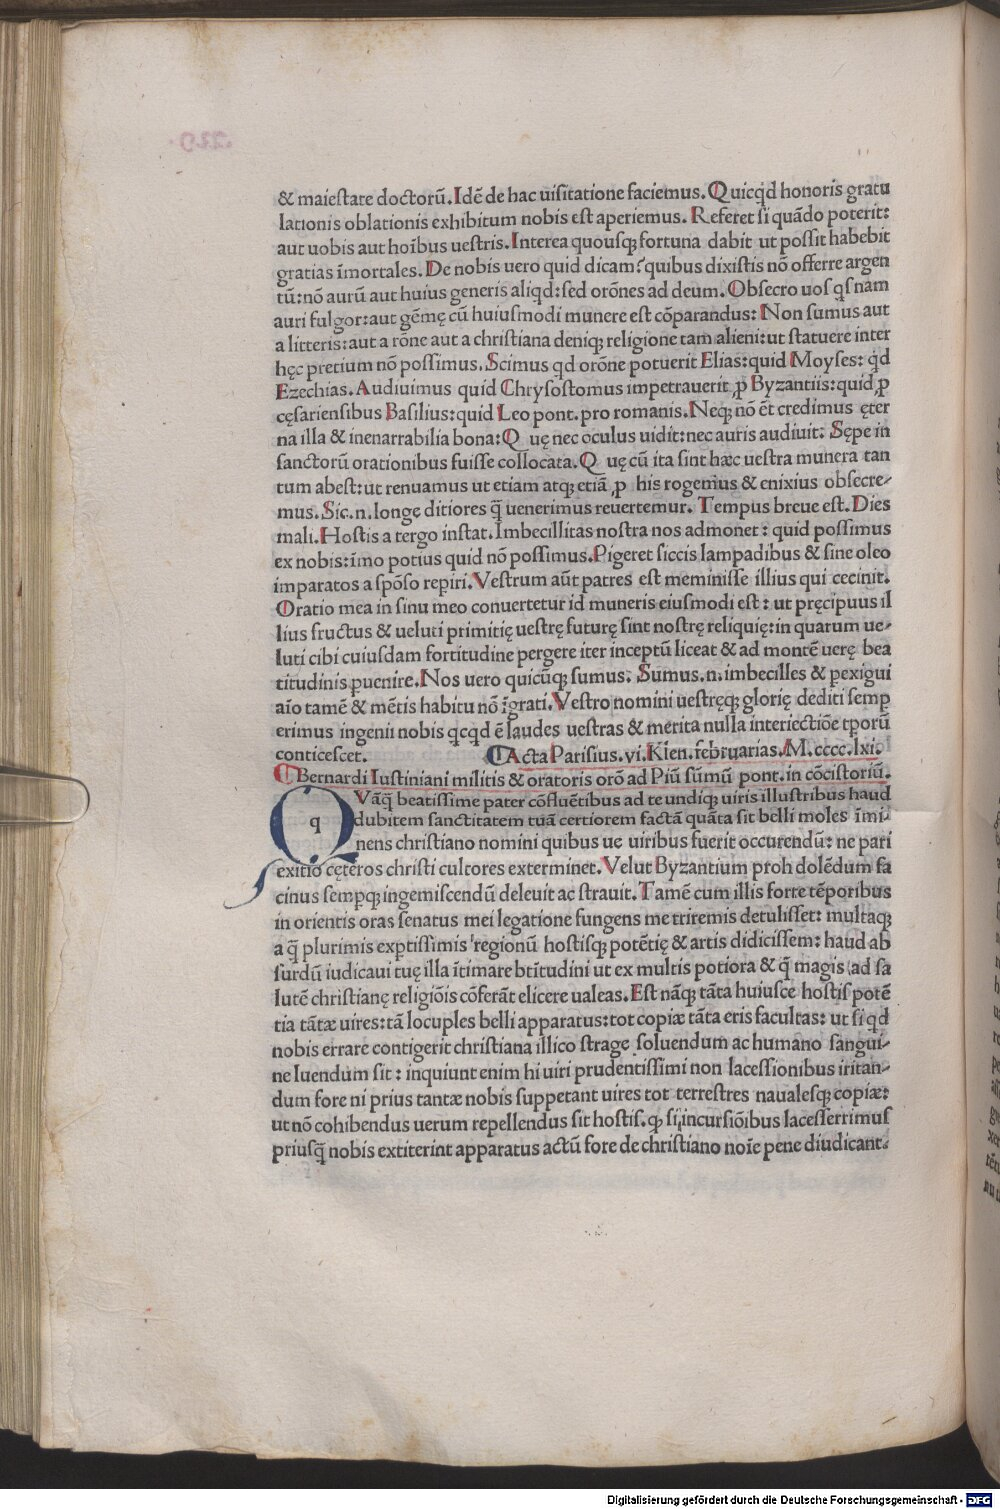 & maiestate doctorū. Idē de hac uisitatione faciemus. Quicqd honoris gratu
lationis oblationis exhibitum nobis est aperiemus. Referet si quādo poterit:
aut uobis aut hoībus uestris. Interea quousqꝫ fortuna dabit ut possit habebit
gratias īmortales. De nobis uero quid dicam? quibus dixistis nō offerre argen
tū: nō aurū aut huius generis aliqd: sed orōnes ad deum. Obsecro uos qs nam
auri fulgor: aut gēmę cū huiusmodi munere est cōparandus: Non sumus aut
a litteris: aut a rōne aut a christiana deniqꝫ religione tam alieni: ut statuere inter
hęc pretium nō possimus. Scimus qd orōne potuerit Elias: quid Moyses: qd
Ezechias. Audiuimus quid Chrysostomus impetrauerit ꝓ Byzantiis: quid ꝓ
cęsariensibus Basilius: quid Leo pont. pro romanis. Neqꝫ nō ēt credimus ęter
na illa & inenarrabilia bona: Quę nec oculus uidit: nec auris audiuit: Sępe in
sanctorū orationibus fuisse collocata. Quę cū ita sint hæc uestra munera tan
tum abest: ut renuamus ut etiam atqꝫ etiā ꝓ his rogemus & enixius obsecre-
mus. Sic .n. longe ditiores q̄ uenerimus reuertemur. Tempus breue est. Dies
mali. Hostis a tergo instat. Imbecillitas nostra nos admonet: quid possimus
ex nobis: īmo potius quid nō possimus. Pigeret siccis lampadibus & sine oleo
imparatos a spōso reꝑiri. Vestrum aūt patres est meminisse illius qui cecinit.
Oratio mea in sinu meo conuertetur id muneris eiusmodi est: ut pręcipuus il
lius fructus & ueluti primitię uestrę futurę sint nostrę reliquię: in quarum ue-
luti cibi cuiusdam fortitudine pergere iter inceptū liceat & ad montē uerę bea
titudinis ꝑuenire. Nos uero quicūqꝫ sumus: Sumus .n. imbecilles & ꝑexigui
aīo tamē & mētis habitu nō īgrati. Vestro nomini uestręqꝫ glorię dediti semꝑ
erimus ingenii nobis qcqd ē laudes uestras & merita nulla interiectiōe tporū
conticescet. Acta Parisius. vi. Klen. februarias. M. cccc. lxi.
Bernardi Iustiniani militis & oratoris orō ad Piū sūmū pont. in cōcistoriū.
q Vāq̄ beatissime pater cōfluētibus ad te undiqꝫ uiris illustribus haud
dubitem sanctitatem tuā certiorem factā quāta sit belli moles īmi-
nens christiano nomini quibus ue uiribus fuerit occurendū: ne pari
exitio cęteros christi cultores exterminet. Velut Byzantium proh dolēdum fa
cinus semꝑqꝫ ingemiscendū deleuit ac strauit. Tamē cum illis forte tēporibus
in orientis oras senatus mei legatione fungens me triremis detulisset: multaqꝫ
a q̄ plurimis exꝑtissimis regionū hostisqꝫ potētię & artis didicissem: haud ab
surdū iudicaui tuę illa ītimare btītudini ut ex multis potiora & q̄ magis ad sa
lutē christianę religiōis cōferāt elicere ualeas. Est nāqꝫ tāta huiusce hostis potē
tia tātæ uires: tā locuples belli apparatus: tot copiæ tāta eris facultas: ut si qd
nobis errare contigerit christiana illico strage soluendum ac humano sangui-
ne luendum sit: inquiunt enim hi uiri prudentissimi non lacessionibus iritan-
dum fore ni prius tantæ nobis suppetant uires tot terrestres naualesqꝫ copiæ:
ut nō cohibendus uerum repellendus sit hostis. qꝫ si incursiōibus lacesserrimus
priusq̄ nobis extiterint apparatus actū fore de christiano noīe pene diudicant.
Digitalisierung gefördert durch die Deutsche Forschungsgemeinschaft - DFG